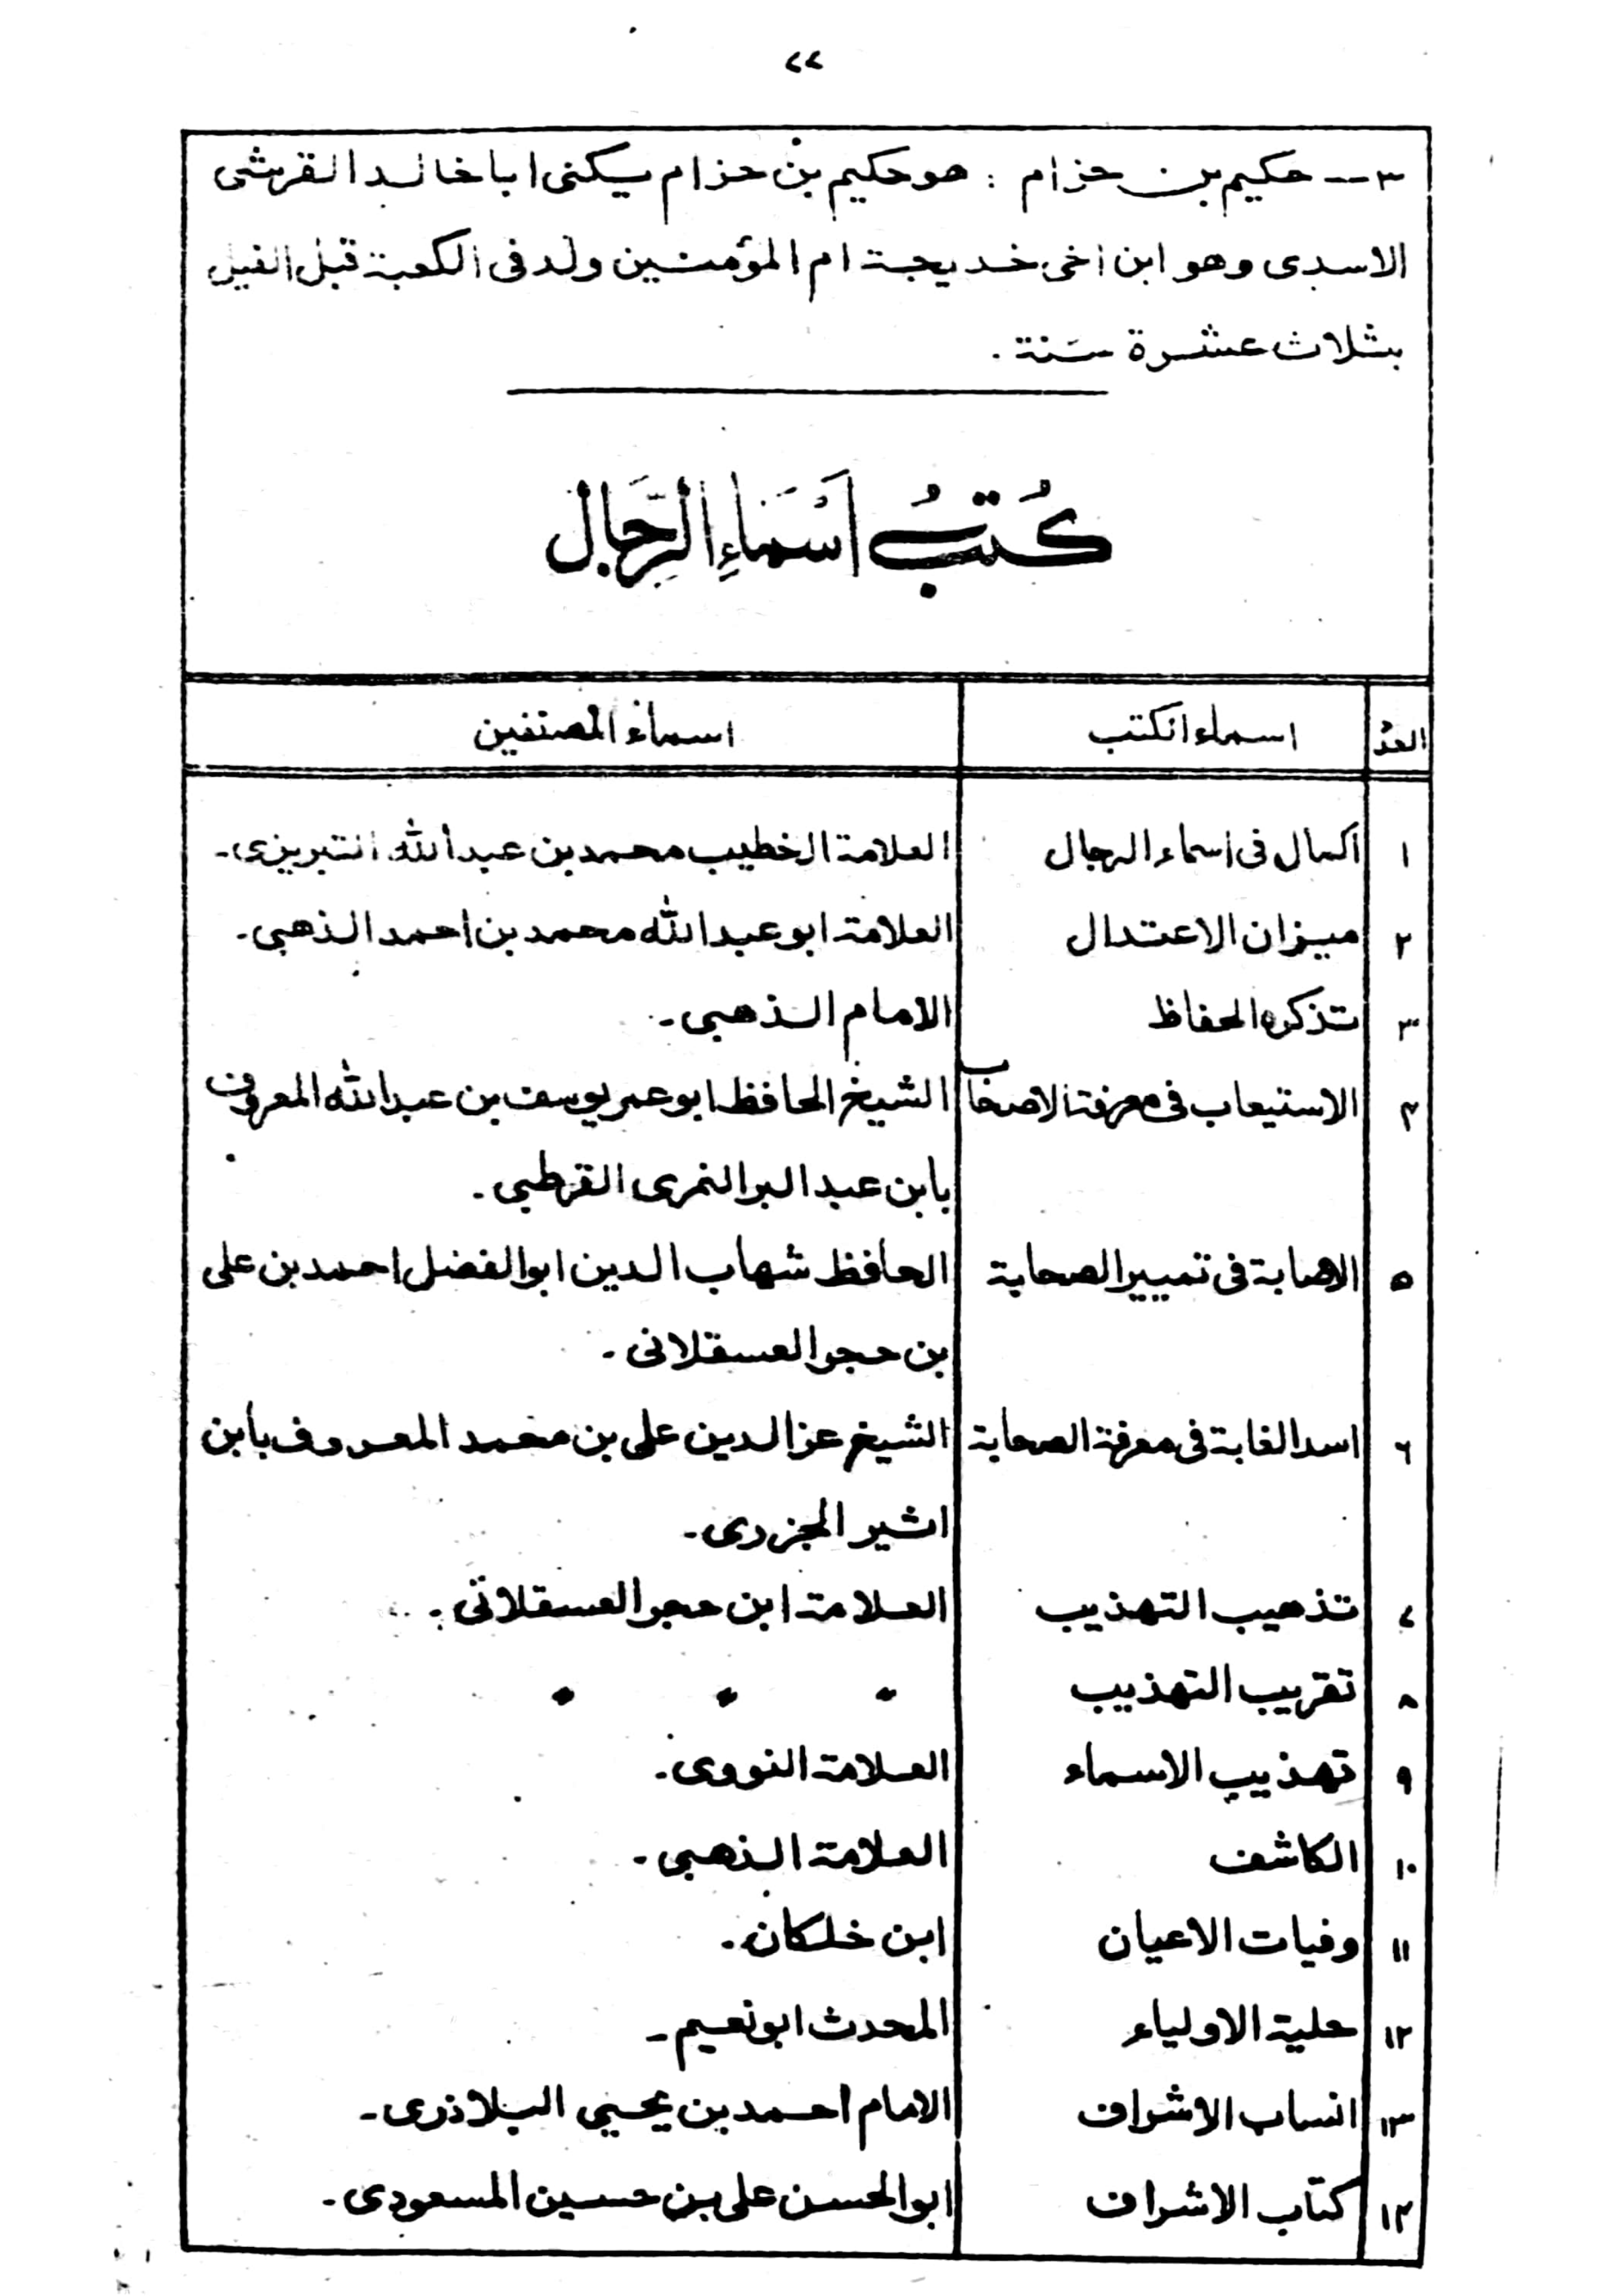 ٧٧
٣— حكيم بن حزام : هو حكيم بن حزام يكنى ابا خالد القرشى
الاسدى وهو ابن اخى خديجة ام المؤمنين ولد فى الكعبة قبل الفيل
بثلاث عشرة سنة .
كُتُبُ اَسْمَاءِ الرِّجَال
العدد اسماء الكتب اسماء المصنفين
١ اكمال فى اسماء الرجال العلامة الخطيب محمد بن عبد الله التبريزى۔
٢ ميزان الاعتدال العلامة ابو عبد الله محمد بن احمد الذهبى۔
٣ تذكره الحفاظ الامام الذهبى۔
۴ الاستيعاب فى معرفة الاصحاب الشيخ الحافظ ابو عمر يوسف بن عبد الله المعروف
بابن عبد البر النمرى القرطبى۔
٥ الاصابة فى تمييز الصحابة الحافظ شهاب الدين ابو الفضل احمد بن على
بن حجر العسقلانى۔
٦ اسد الغابة فى معرفة الصحابة الشيخ عز الدين على بن محمد المعروف بابن
اثير الجزرى۔
٧ تذهيب التهذيب العلامة ابن حجر العسقلانى۔
٨ تقريب التهذيب " " "
٩ تهذيب الاسماء العلامة النووى۔
١٠ الكاشف العلامة الذهبى۔
١١ وفيات الاعيان ابن خلكان۔
١٢ حلية الاولياء المحدث ابو نعيم۔
١٣ انساب الاشراف الامام احمد بن يحيي البلاذرى۔
١۴ كتاب الاشراف ابو الحسن على بن حسين المسعودى۔